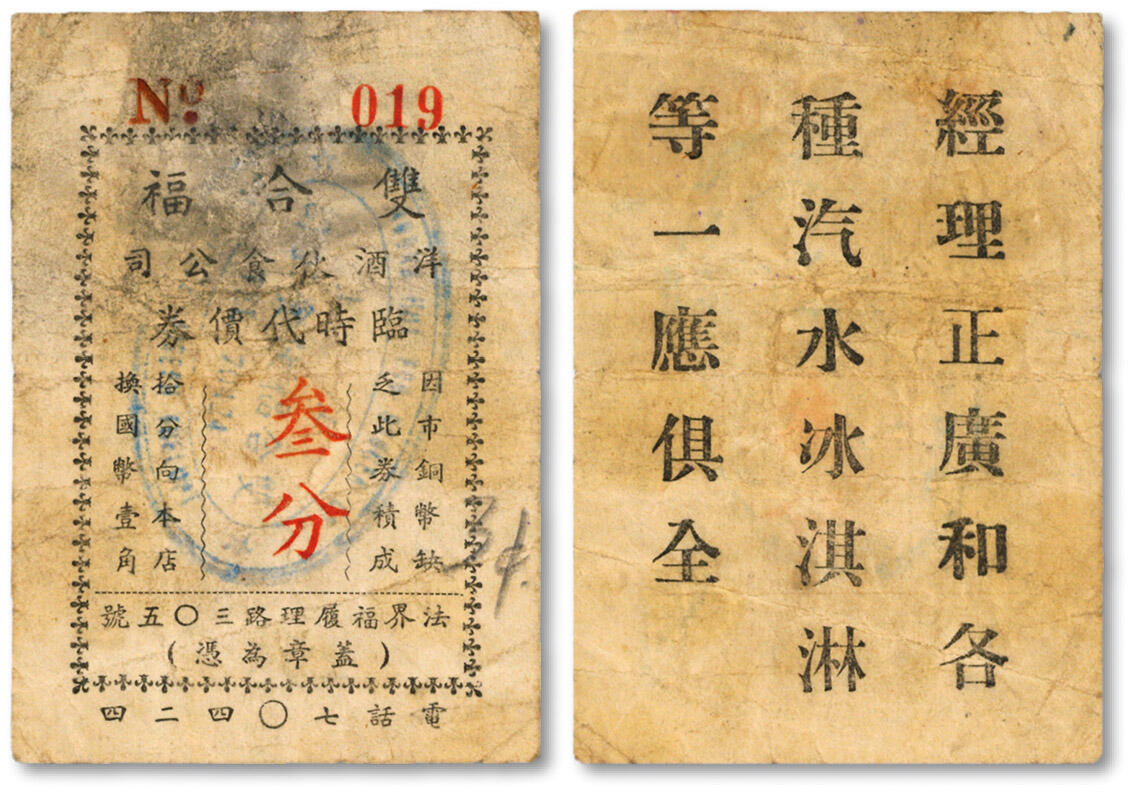 No. 019
雙合福
洋酒伙食公司
臨時代價券
因市銅幣缺
乏此券積成
叁分
拾分向本店
換國幣壹角
法界福履理路三〇五號
(蓋章為憑)
電話七〇四二四
經理正廣和各
種汽水冰淇淋
等一應俱全